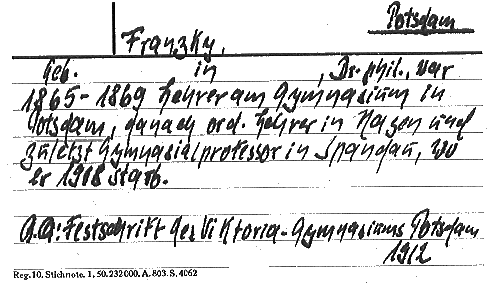 Potsdam
Franzky,
geb. in , Dr. phil., war
1865-1869 Lehrer am Gymnasium in
Potsdam, danach ord. Lehrer in Hagen und
zuletzt Gymnasialprofessor in Spandau, wo
er 1908 starb.
A.A: Festschrift des Viktoria-Gymnasiums Potsdam
1912
Reg. 10. Stichnote. 1. 50. 232000. A. 803. S. 4062